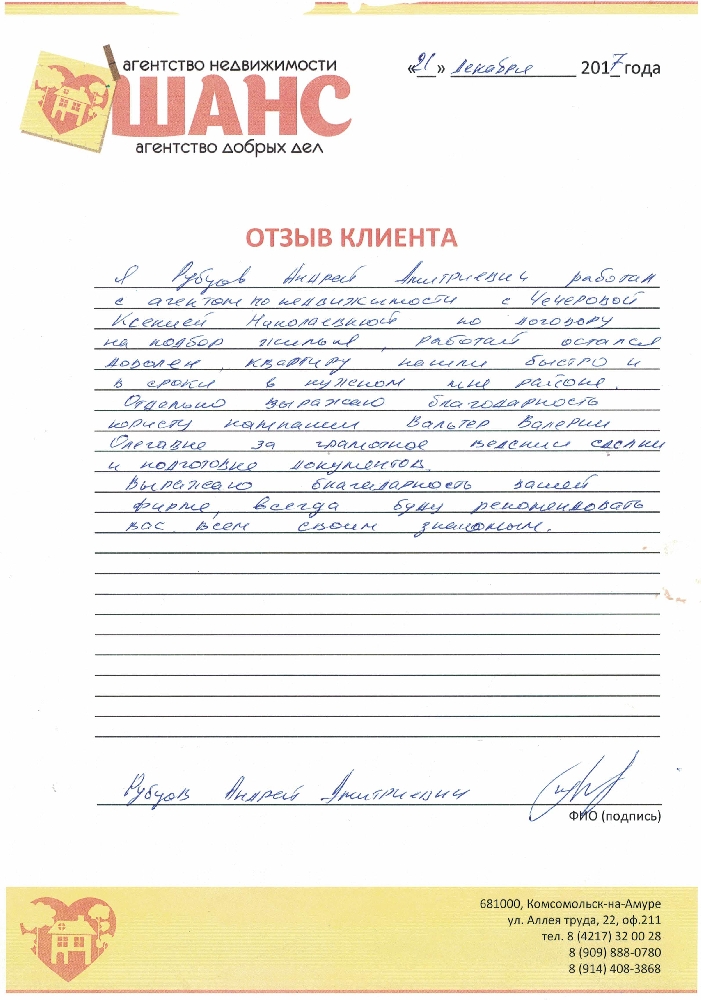 агентство недвижимости
ШАНС
агентство добрых дел
«21» декабря 2017 года
ОТЗЫВ КЛИЕНТА
Я Рубцов Андрей Дмитриевич работал
с агентом по недвижимости с Чечеровой
Ксенией Николаевной по договору
на подбор жилья, работай остался
доволен, квартиру нашли быстро и
в сроки в нужном мне районе.
Отдельно выражаю благодарность
юристу компании Вальтер Валерии
Олеговне за грамотное ведение сделки
и подготовке документов.
Выражаю благодарность вашей
фирме, всегда буду рекомендовать
вас всем своим знакомым.
Рубцов Андрей Дмитриевич
ФИО (подпись)
681000, Комсомольск-на-Амуре
ул. Аллея труда, 22, оф.211
тел. 8 (4217) 32 00 28
8 (909) 888-0780
8 (914) 408-3868